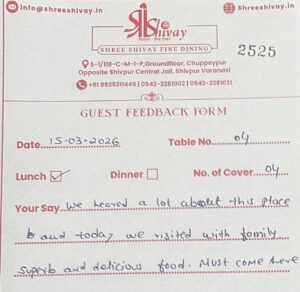 info@shreeshivay.in
Shreeshivay.in
Shivay
SHREE SHIVAY FINE DINING
2525
S-1/118-C-M-1-P,Groundfloor, Chuppeypur
Opposite Shivpur Central Jail, Shivpur Varanasi
+91 9935311449 | 0542-2281001 | 0542-2281031
GUEST FEEDBACK FORM
Date 15-03-2026 Table No. 04
Lunch Dinner No. of Cover 04
Your Say we heared a lot about this place
and today we visited with family
superb and delicious food. Must come here